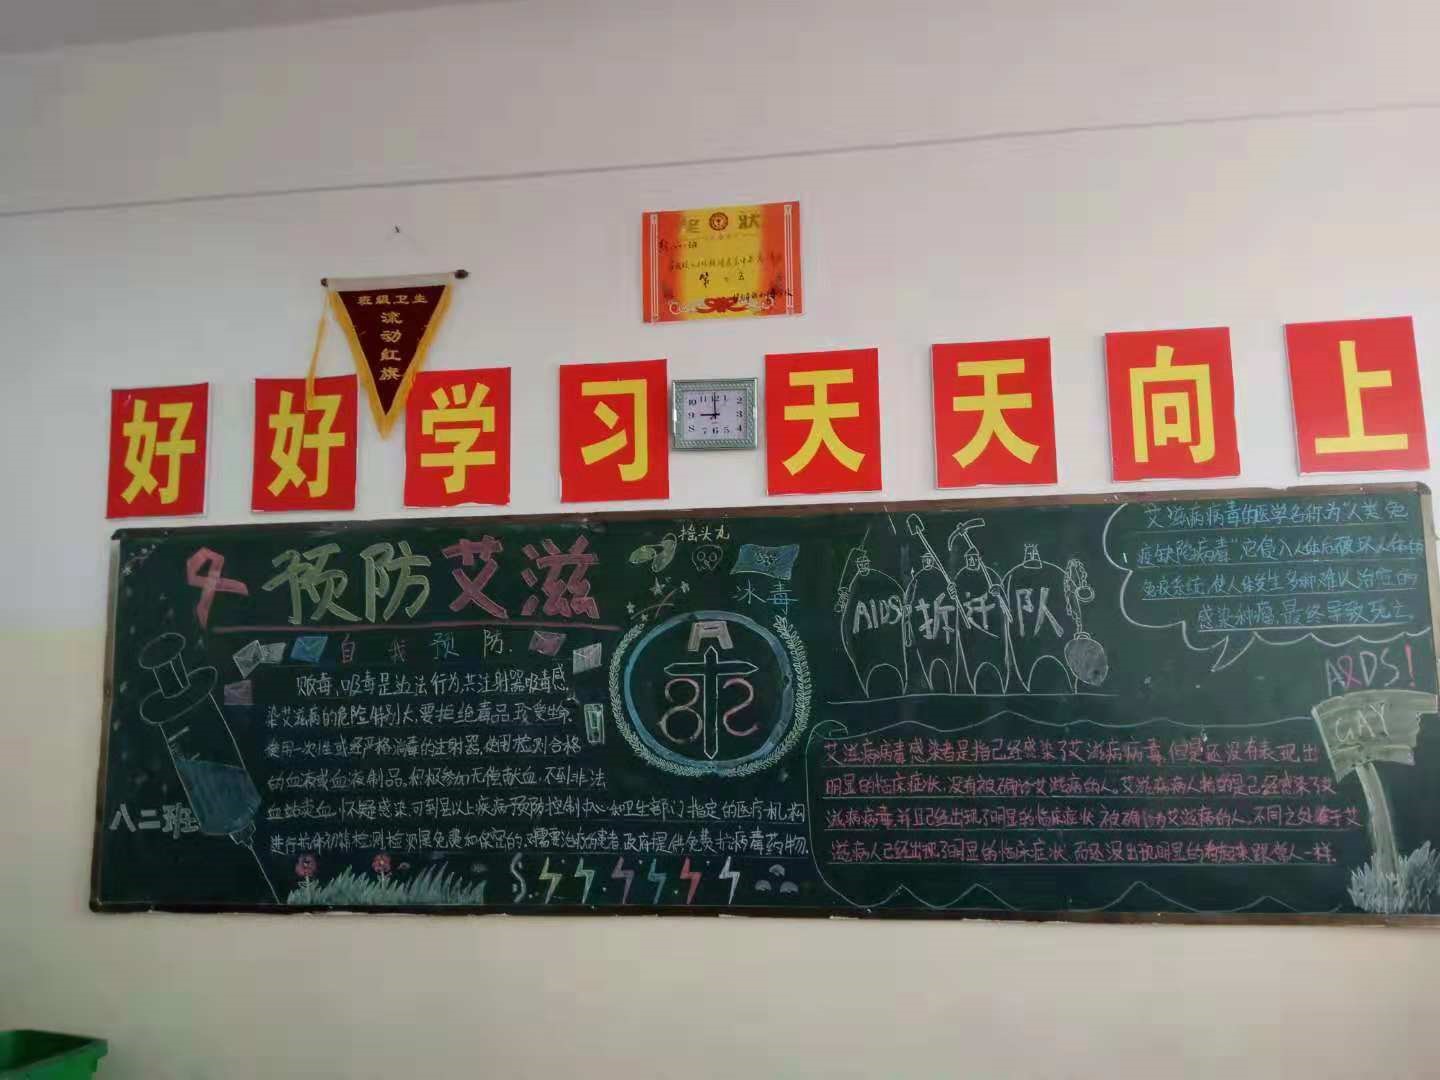 奖状
第
班级卫生
流动红旗
好好学习天天向上
10 11 12 1 2
9 3
8 7 6 5 4
预防艾滋
自我预防
贩毒、吸毒是违法行为,共注射器吸毒感
染艾滋病的危险特别大,要拒绝毒品,珍爱生命.
使用一次性或经严格消毒的注射器,使用检测合格
的血液或血液制品,积极参加无偿献血,不到非法
血站卖血,怀疑感染,可到县以上疾病预防控制中心和卫生部门指定的医疗机构
进行抗体初筛检测,检测是免费和保密的,对需要治疗的患者,政府提供免费抗病毒药物.
八二班
摇头丸
冰毒
AIDS拆迁队
艾滋病病毒的医学名称为"人类免
疫缺陷病毒"它侵入人体后破坏人体的
免疫系统,使人体发生多种难以治愈的
感染和肿瘤,最终导致死亡.
AIDS!
GAY
艾滋病病毒感染者是指已经感染了艾滋病病毒,但是还没有表现出
明显的临床症状,没有被确诊艾滋病的人,艾滋病病人指的是已经感染了艾
滋病病毒,并且已经出现了明显的临床症状,被确诊为艾滋病的人,不同之处在于艾
滋病人已经出现了明显的临床症状,而还没出现明显的看起来跟常人一样.